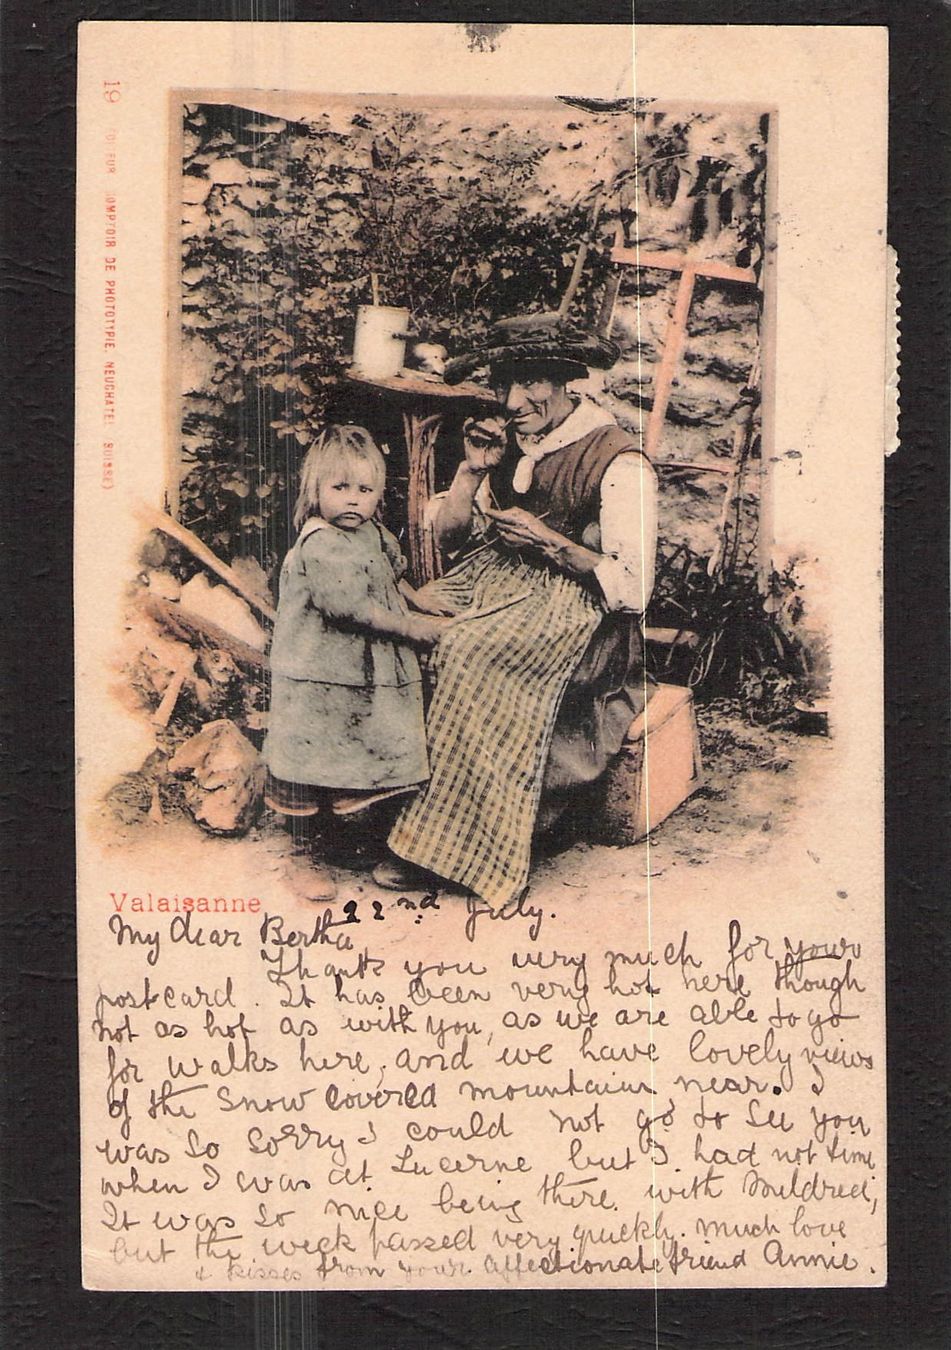 19
COMPTOIR DE PHOTOTYPIE, NEUCHATEL SUISSE)
Valaisanne
22nd July.
My dear Bertha
Thanks you very much for your
postcard. It has been very hot here though
not as hot as with you, as we are able to go
for walks here, and we have lovely views
of the snow covered mountains near. I
was so sorry I could not go to see you
when I was at Lucerne but I had not time
It was so nice being there with Mildred,
but the week passed very quickly. much love
& kisses from your affectionate friend Annie.